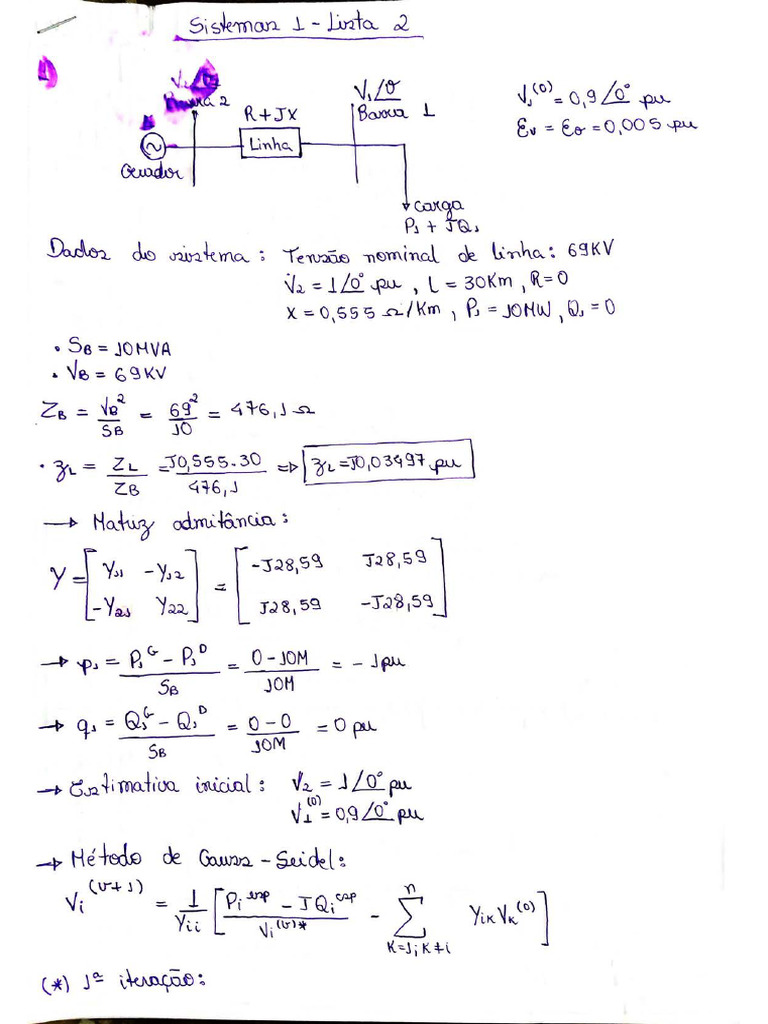 Sistemas 1 - Lista 2
1)
Barra 2
V₁/θ
Barra 1
R+JX
Linha
Gerador
carga
P₁ + JQ₁
V₁⁽⁰⁾ = 0,9/0° pu
Ev = Eθ = 0,005 pu
Dados do sistema: Tensão nominal de linha: 69KV
V̇₂ = 1/0° pu, L = 30Km, R=0
X = 0,555 Ω/Km, P₁ = 10MW, Q₁ = 0
• SB = 10MVA
• VB = 69KV
ZB = VB²/SB = 69²/10 = 476,1 Ω
• zL = ZL/ZB = J0,555.30/476,1 => zL = J0,03497 pu
→ Matriz admitância:
Y = [Y₁₁ -Y₁₂; -Y₂₁ Y₂₂] = [-J28,59 J28,59; J28,59 -J28,59]
→ p₁ = P₁ᴳ - P₁ᴰ/SB = 0 - 10M/10M = -1pu
→ q₁ = Q₁ᴳ - Q₁ᴰ/SB = 0 - 0/10M = 0 pu
→ Estimativa inicial: V₂ = 1/0° pu
V₁⁽⁰⁾ = 0,9/0° pu
→ Método de Gauss-Seidel:
Vi⁽ᵛ⁺¹⁾ = 1/Yii [Pi esp - JQi esp/Vi⁽ᵛ⁾* - Σ n K=1; K≠i YiK VK⁽⁰⁾]
(*) 1ª iteração: